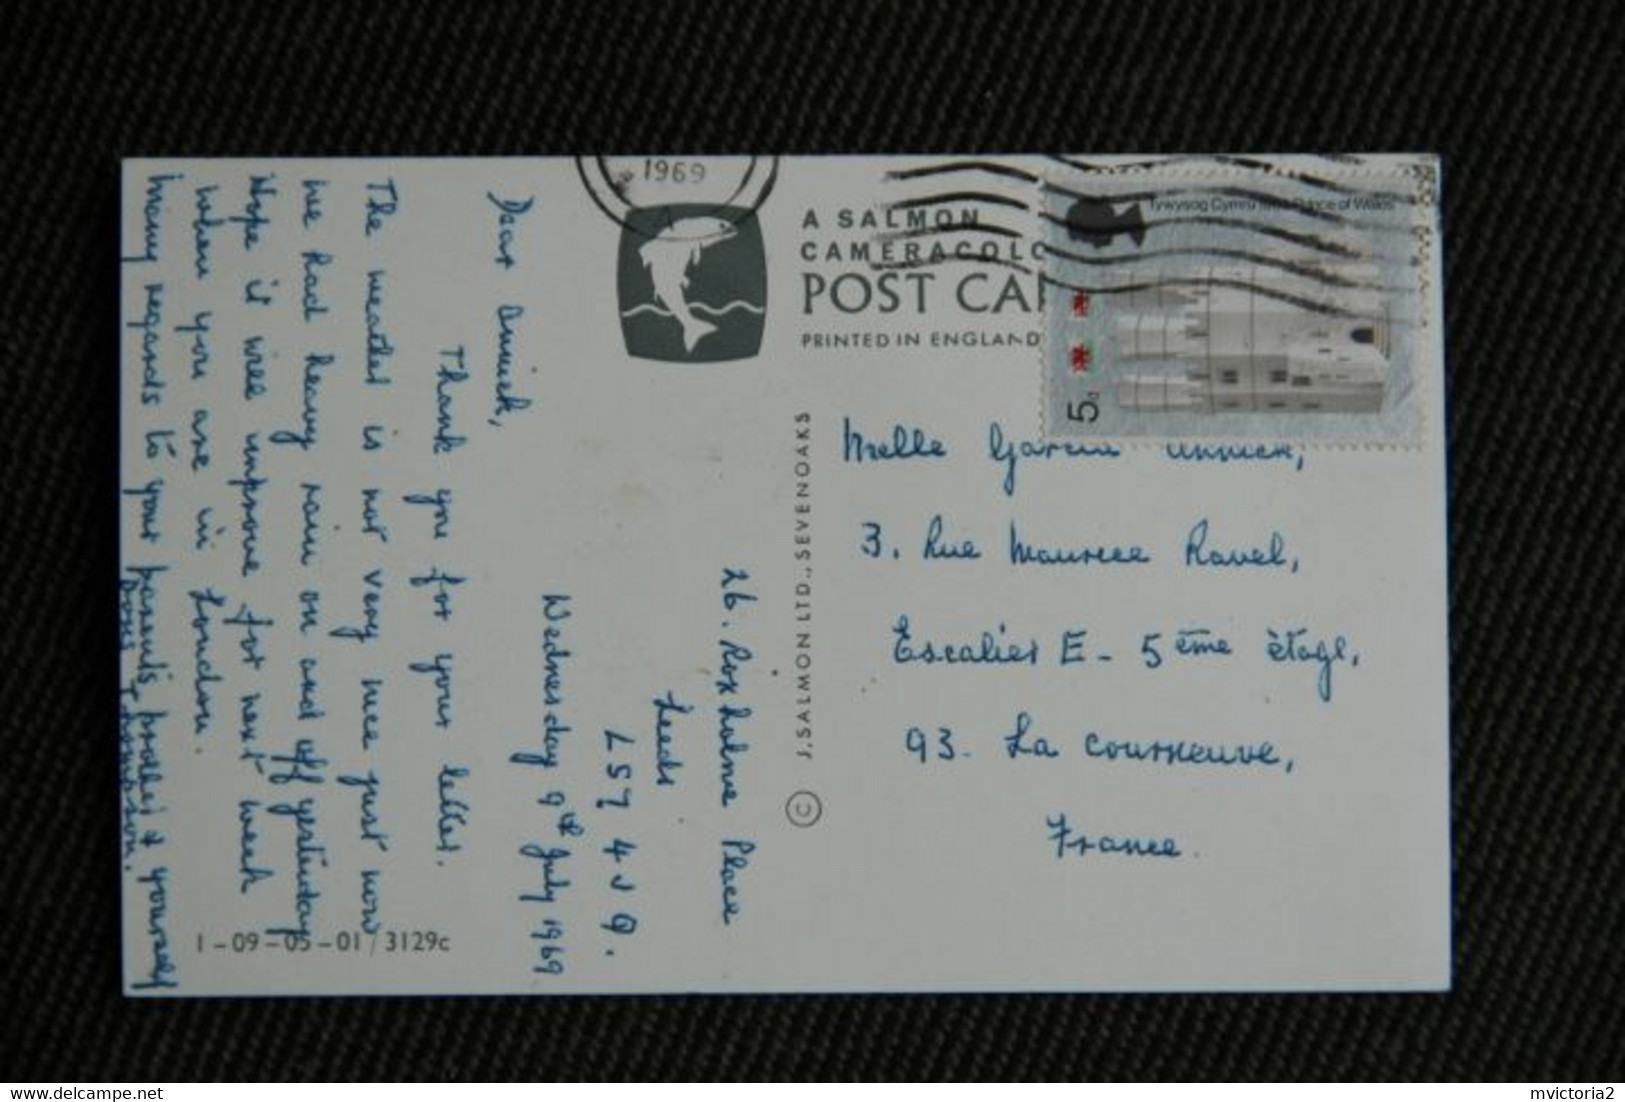 1969
A SALMON
CAMERACOLO
POST CA
PRINTED IN ENGLAND
Tywysog Cymru 1969 Prince of Wales
5d
© J. SALMON LTD., SEVENOAKS
26. Roxholme Place
Leeds
LS7 4JQ.
Wednesday 9th July 1969
Dear Annick,
Thank you for your letter.
The weather is not very nice just now
we had heavy rain on and off yesterday
Hope it will improve for next week
when you are in London.
Many regards to your parents, brother & yourself
Thompson.
Melle Garcia Annick,
3. Rue Maurice Ravel,
Escalier E - 5ème étage,
93 - La Courneuve,
France.
1-09-05-01/3129c
mvictoria2